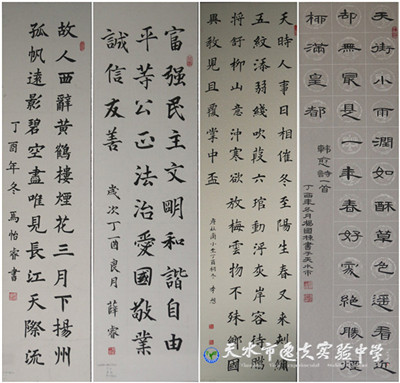 故人西辭黃鶴樓煙花三月下揚州
孤帆遠影碧空盡唯見長江天際流
丁酉年冬 馬怡睿書
富强民主文明和諧自由
平等公正法治愛國敬業
誠信友善
歲次丁酉良月 薛睿
天時人事日相催冬至陽生春又來刺繡
五紋添弱綫吹葭六琯動浮灰岸容待臘
將舒柳山意沖寒欲放梅雲物不殊鄉國
異教兒且覆掌中盃
唐杜甫小至丁酉初冬 李想
天街小雨潤如酥草色遙看近
却無最是一年春好處絕勝煙
柳滿皇都
韓愈詩一首
丁酉年冬月楊國棟書于天水市
天水市逸夫实验中学